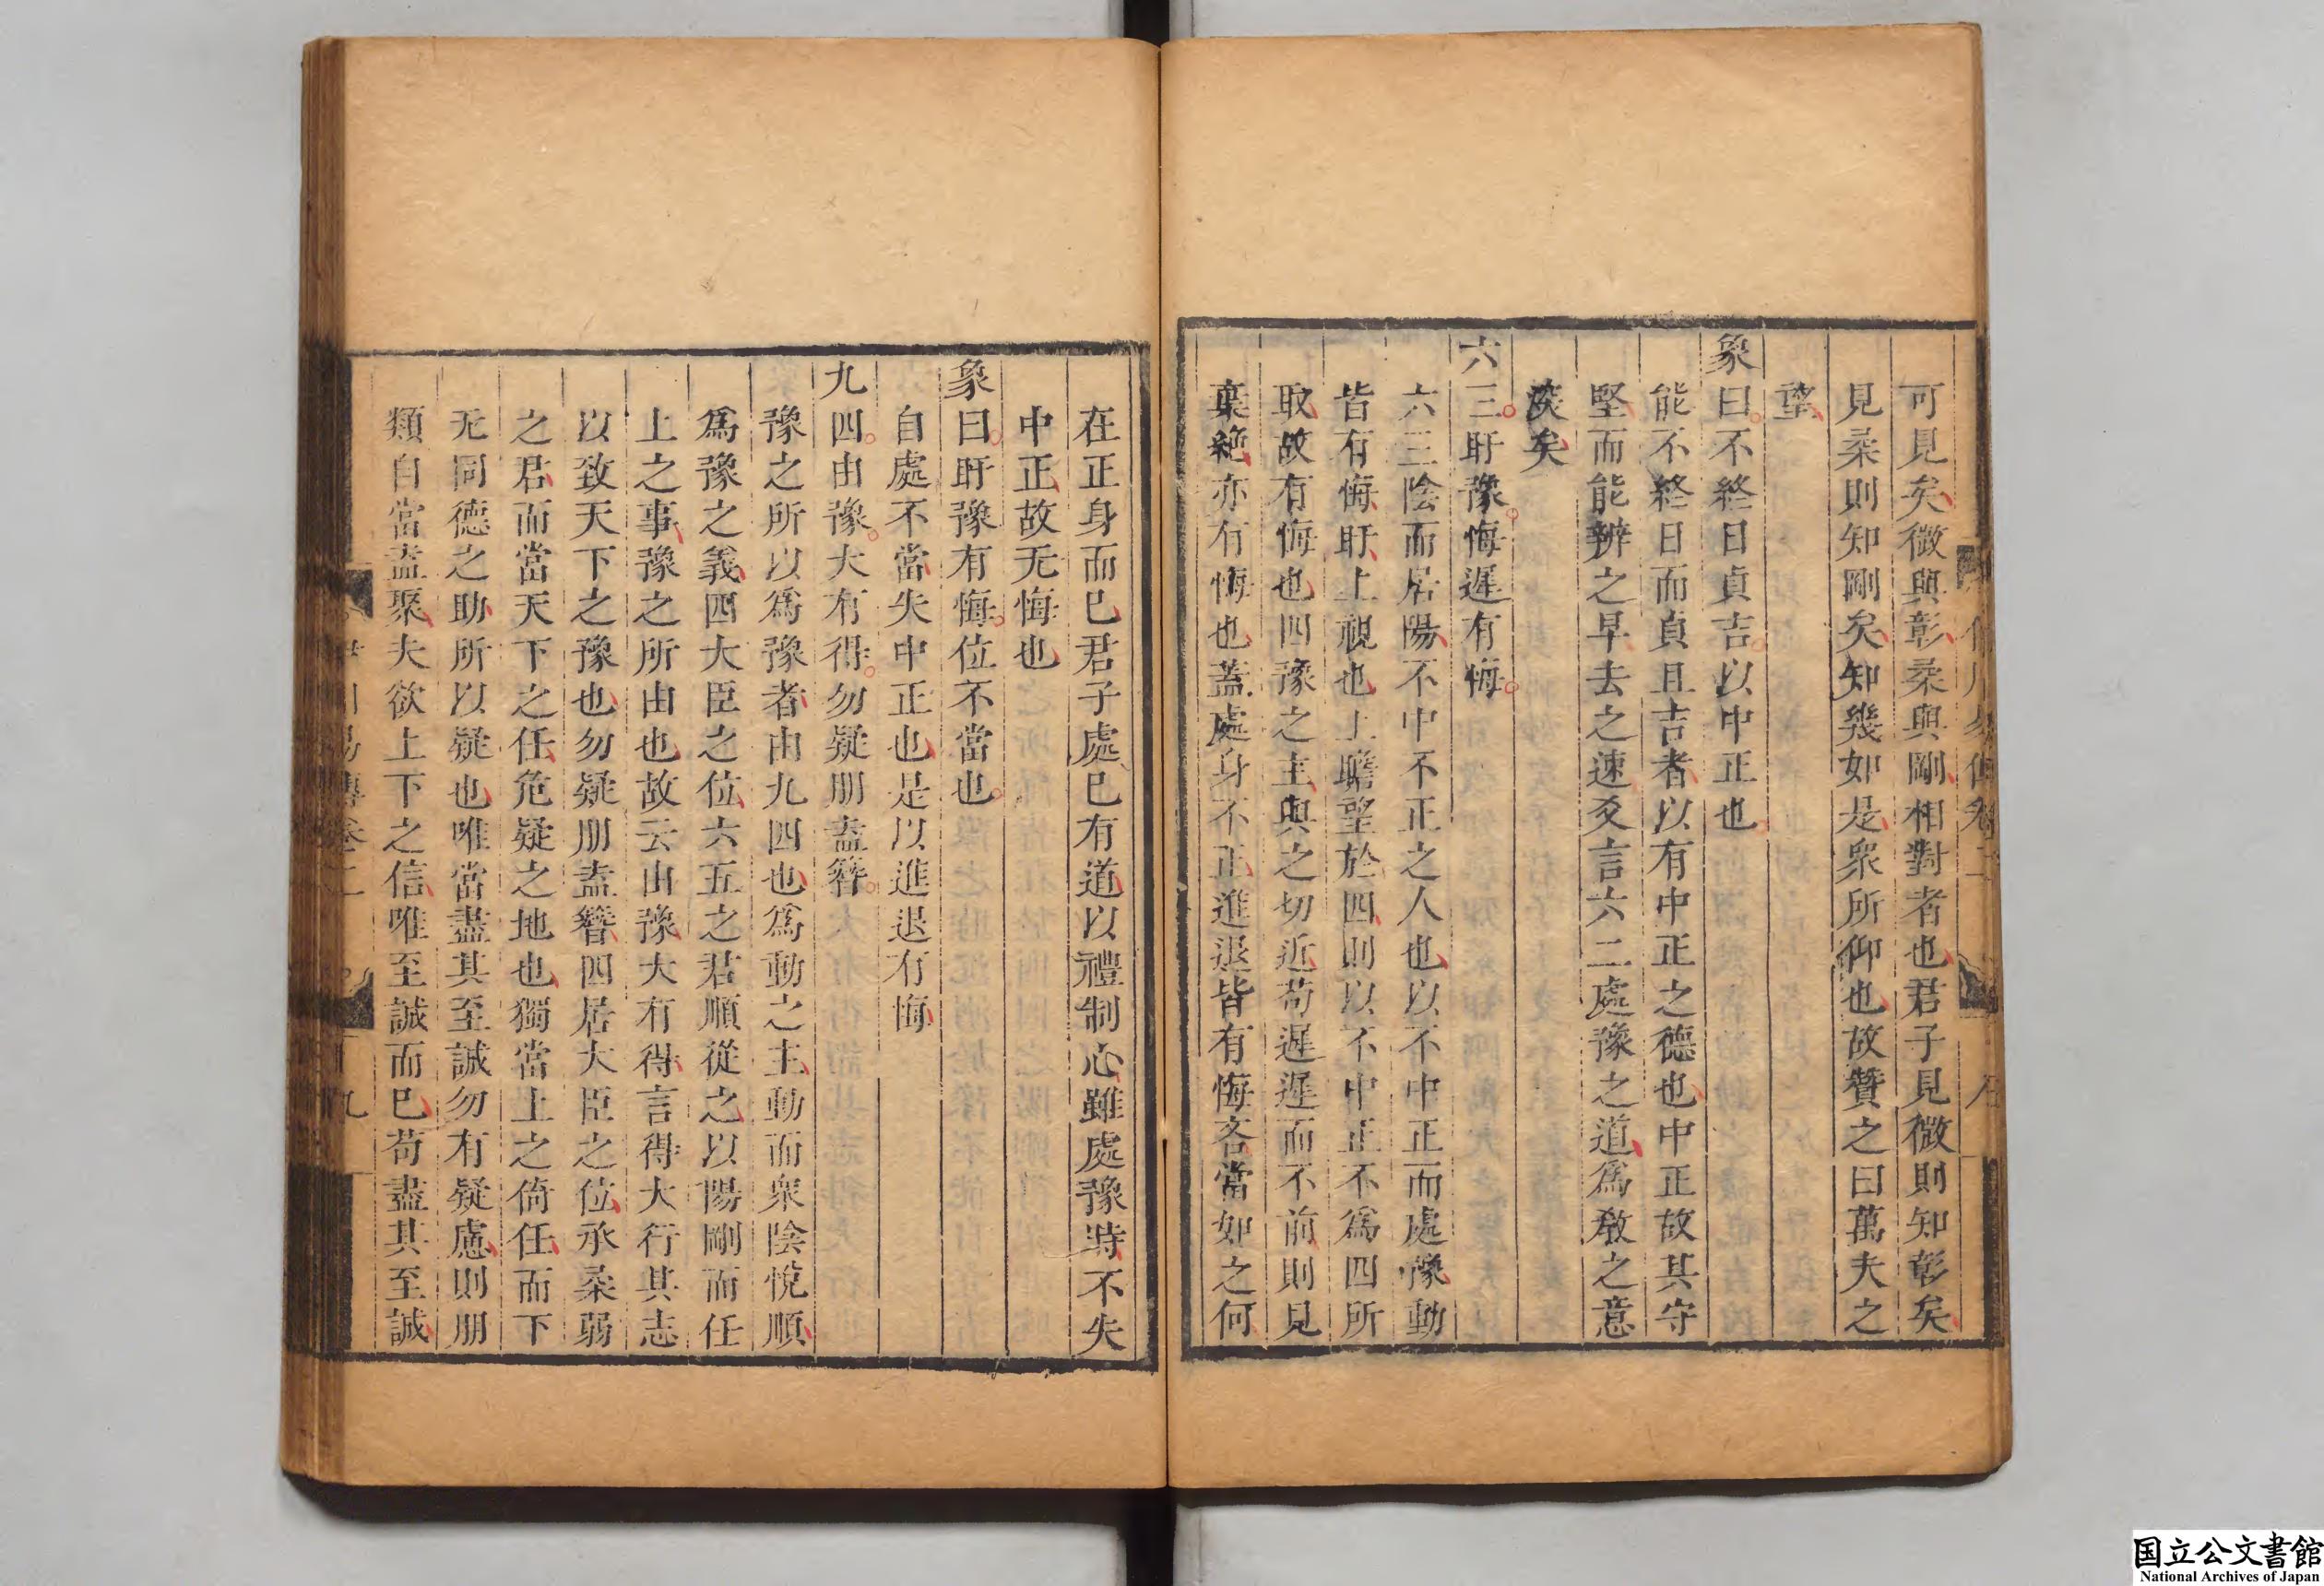 可見矣微與彰柔與剛相對者也君子見微則知彰矣
見柔則知剛矣知幾如是衆所仰也故贊之曰萬夫之
望
象曰不終日貞吉以中正也
能不終日而貞且吉者以有中正之德也中正故其守
堅而能辨之早去之速爻言六二處豫之道爲敎之意
深矣
六三盱豫悔遲有悔
六三陰而居陽不中不正之人也以不中正而處豫動
皆有悔盱上視也上瞻望於四則以不中正不爲四所
取故有悔也四豫之主與之切近苟遲遲而不前則見
棄絶亦有悔也蓋處身不正進退皆有悔吝當如之何
在正身而已君子處已有道以禮制心雖處豫時不失
中正故无悔也
象曰盱豫有悔位不當也
自處不當失中正也是以進退有悔
九四由豫大有得勿疑朋盍簪
豫之所以爲豫者由九四也爲動之主動而衆陰悅順
爲豫之義四大臣之位六五之君順從之以陽剛而任
上之事豫之所由也故云由豫大有得言得大行其志
以致天下之豫也勿疑朋盍簪四居大臣之位承柔弱
之君而當天下之任危疑之地也獨當上之倚任而下
无同德之助所以疑也唯當盡其至誠勿有疑慮則朋
類自當盍聚夫欲上下之信唯至誠而已苟盡其至誠
伊川易傳卷二
九
国立公文書館
National Archives of Japan